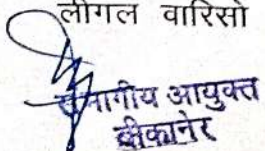 लीगल वारिसो
संभागीय आयुक्त
बीकानेर